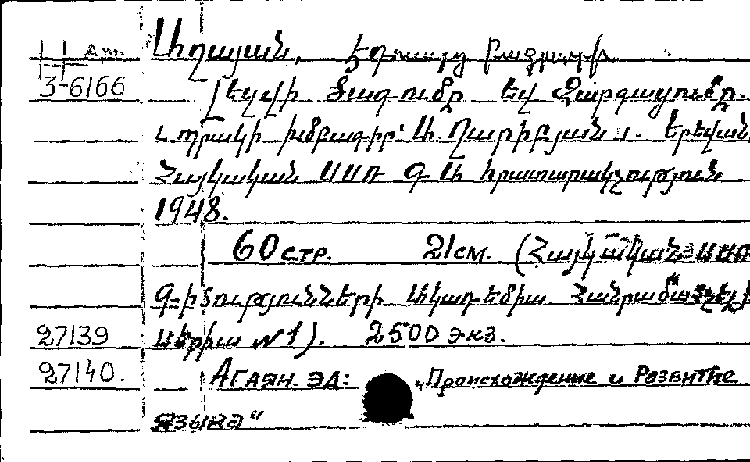 Աղայան, Էդուարդ Բագրատի
3-6166 Լեզվի ծագումը եվ զարգացումը.
Հոպրակի խմբագիր՝ Ա. Ղարիբյան:. Երեվան,
Հայկական ՍՍՌ ԳԱ հրատարակչություն
1948.
60 стр. 21 см. (Հայկական ՍՍՌ
գիտությունների Ակադեմիա Հանրամատչելի
27139 սերիա №1). 2500 экз.
27140. Агаян. Эд: „Происхождение и Развитие
языка“